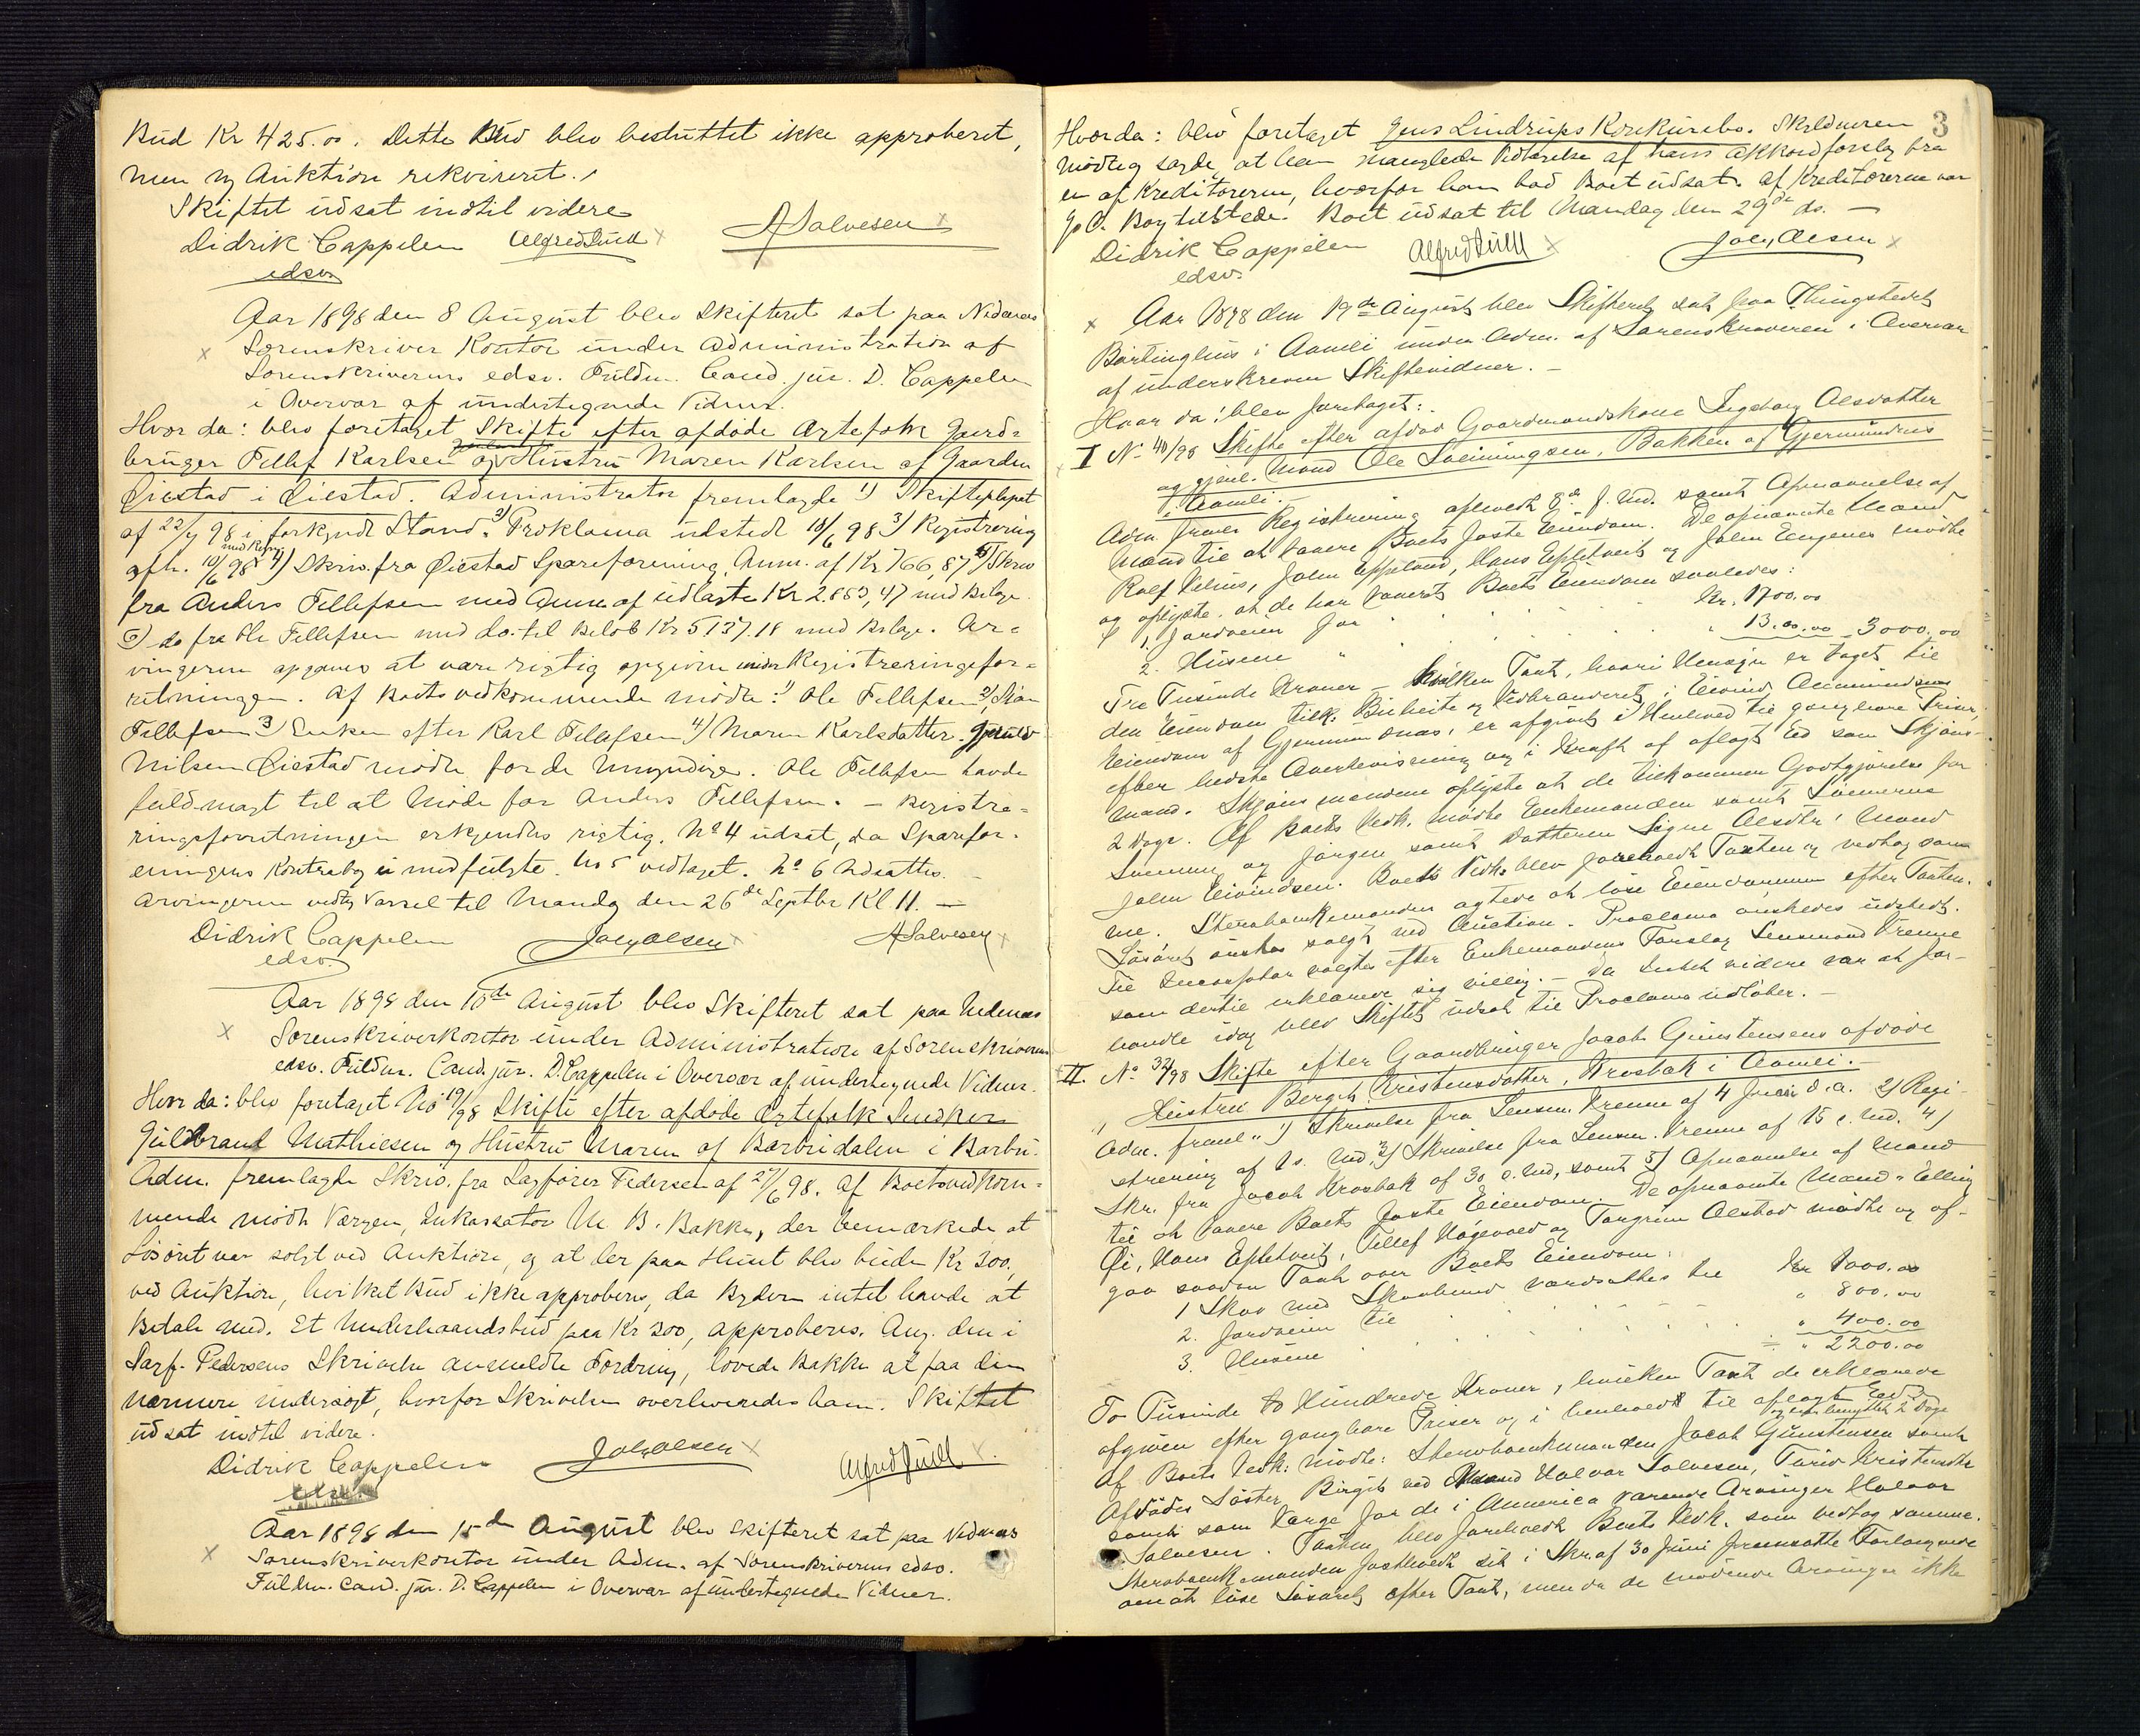 Bud Kr 425.00. Dette Bud blev besluttet ikke approberet,
men ny Auktion rekvireret.
Skiftet udsat indtil videre
Didrik Cappelen Alfred Juell A Salvesen
edsv.
Aar 1898 den 8 August blev Skifteret sat paa Nedenes
Sorenskriver Kontor under Administration af
Sorenskriverens edsv. Fuldm. Cand. jur. D. Cappelen
i Overvær af undertegnede Vidner.
Hvor da: blev foretaget Skifte efter afdøde Ægtefolk Gaard-
bruger Tellef Karlsen og Hustru Maren Karlsen af Gaarden
Øiestad i Øiestad. Administrator fremlagde 1) Skifteplapat
af 22/4 98 i forkyndt Stand. 2) Proklama udstedt 18/6 98 3) Registrering
afh. 10/6 98 4) Skriv. fra Øiestad Spareforening, Anm. af Kr 766,87 5) Skriv
fra Anders Tellefsen med Anm af udlagte Kr 2.883,47 med Bilage
6) do fra Ole Tellefsen med do. til Beløb Kr 5137.18 med Bilage. Ar-
vingerne opgaves at være rigtig opgivne under Registreringsfor-
retningen. Af Boets vedkommende mødte: 1) Ole Tellefsen 2)
Tellefsen 3) Enken efter Karl Tellefsen 4) Maren Karlsdatter.
Nilsen Øiestad mødte for de Umyndige. Ole Tellefsen havde
fuldmagt til at Møde for Anders Tellefsen. - Registre-
ringsforretningen erkjendes rigtig. No 4 udsat, da Sparefor-
eningens Kontrabog ei medfulgte. No 5 vedtaget. No 6 Udsattes.
Arvingerne vedtog Varsel til Mandag den 26de Septbr Kl 11. —
Didrik Cappelen Joh. Olsen A Salvesen
edsv.
Aar 1898 den 10de August blev Skifteret sat paa Nedenes
Sorenskriverkontor under Administration af Sorenskriverens
edsv. Fuldm. Cand. jur. D. Cappelen i Overvær af undertegnede Vidner.
Hvor da: blev foretaget No 19/98 Skifte efter afdøde Ægtefolk Snedker
Guldbrand Mathiesen og Hustru Maren af Barbudalen i Barbu.
Adm. fremlagde Skriv. fra Sagfører Pedersen af 27/6 98. Af Boets vedkom-
mende mødte Værgen, Inkassator M. B. Bakke, der bemærkede at
Løsøret var solgt ved Auktion, og at der paa Huset blev buden Kr 300,
ved Auktion, hvilket Bud ikke approberes, da Byderen intet havde at
Betale med. Et Underhaandsbud paa Kr 200, approberes. Ang. den i
Sagf. Pedersens Skrivelse anmeldte Fordring, lovede Bakke at faa den
nærmere undersøgt, hvorfor Skrivelsen overleveredes ham. Skiftet
udsat indtil videre.
Didrik Cappelen Joh. Olsen Alfred Juell
Aar 1898 den 15de August blev skifteret sat paa Nedenes
Sorenskriverkontor under Adm. af Sorenskriverens edsv.
Fuldm. Cand. jur. D. Cappelen i Overvær af undertegnede Vidner.
3
Hvor da: blev foretaget Jens Lindrups Konkursbo. Skyldneren
mødte og sagde, at han manglede Vedtagelse af hans Akkordforslag fra
en af Kreditorerne, hvorfor han bad Boet udsat. Af Kreditorerne var
Jo C. Boy tilstede. Boet udsat til Mandag den 29de ds. —
Didrik Cappelen Alfred Juell Joh. Olsen
edsv.
Aar 1898 den 19de August blev Skifteret sat paa Thingstedet
Børtinghus i Aamli under Adm. af Sorenskriveren i Overvær
af underskrevne Skiftevidner. —
Hvor da: blev foretaget:
I No 40/98 Skifte efter afdød Gaardmandskone Ingeborg Olsdatter
og gjenl. Mand Ole Sveinungsen, Bakken af Gjermundnes
i Aamli. —
Adm. freml. Registrering afholdt 8de f. Md. samt Opnævnelse af
Mænd til at taxere Boets faste Eiendom. De opnævnte Mænd
Rolf Vehus, John Eppeland, Hans Eplitveit og John Engenes mødte
og oplyste at de har taxert Boets Eiendom saaledes:
1. Jordveien for Kr. 1700.00
2. Husene " " 13.00.00 3000.00
Tre Tusinde Kroner — hvilken Taxt, hvori Hensyn er taget til
den Eiendom tilk. Buheite og Vedbranderet i Eivind Aamundsens
Eiendom af Gjermundnes, er afgivet i Henhold til gangbare Priser,
efter bedste Overbevisning og i Kraft af aflagt Ed som Skjøns-
mænd. Skjønsmændene oplyste at de tilkommer Godtgjørelse for
2 Dage. Af Boets Vedk. mødte Enkemanden samt Sønnerne
og Jørgen samt Datteren Signe Olsdtr.' Mand
John Eivindsen. Boets Vedk. blev foreholdt Taxten og vedtog sam-
me. Sterbboenkemanden agtede at løse Eiendommen efter Taxten.
Løsøret ønskes solgt ved Auction. Proclama ønskedes udstedt.
Til Incassator valgtes efter Enkemandens Forslag Lensmand Vrenne
som dertil erklærede sig villig. — Da Intet videre var at for-
handle idag blev Skiftet udsat til Proclama udløber. —
II. No 32/98 Skifte efter Gaardbruger Jacob Gunstensens afdøde
Hustru Bergit Kristensdatter, Krosbak i Aamli. —
Adm. freml. 1) Skrivelse fra Lensm. Vrenne af 4 Juni d.a. 2) Regi-
strering af 1 s. Md. 3) Skrivelse fra Lensm. Vrenne af 15 s. Md. 4)
Skr. fra Jacob Krosbak af 30 s. Md, samt 5) Opnævnelse af Mænd
til at taxere Boets faste Eiendom. De opnævnte Mænd: Elling
Øi, Hans Eplitveit, Tellef Haugevold og Torgrim Olstad mødte og af-
gav saadan Taxt over Boets Eiendom:
1 Skov med Skovbund værdsattes til Kr 1000.00
2. Jordveien til " 800.00
3. Husene " 400.00
÷ " 2200.00
To Tusinde to Hundrede Kroner, hvilken Taxt de erklærede
afgiven efter gangbare Priser og i henhold til aflagt Ed.
og har benyttet 2 Dage
Af Boets Vedk. mødte: Sterbboenkemanden Jacob Gunstensen samt
Afdødes Søster Birgit ved Mand Halvor Salvesen, Turid Kristensdtr
samt som Værge for de i America værende Arvinger Halvor
Salvesen. Taxten blev foreholdt Boets Vedk. som vedtog samme.
Sterbboenkemanden fastholdt sit i Skr. af 30 Juni fremsatte Forlangende
om at løse Løsøret efter Taxt, men da de mødende Arvinger ikke